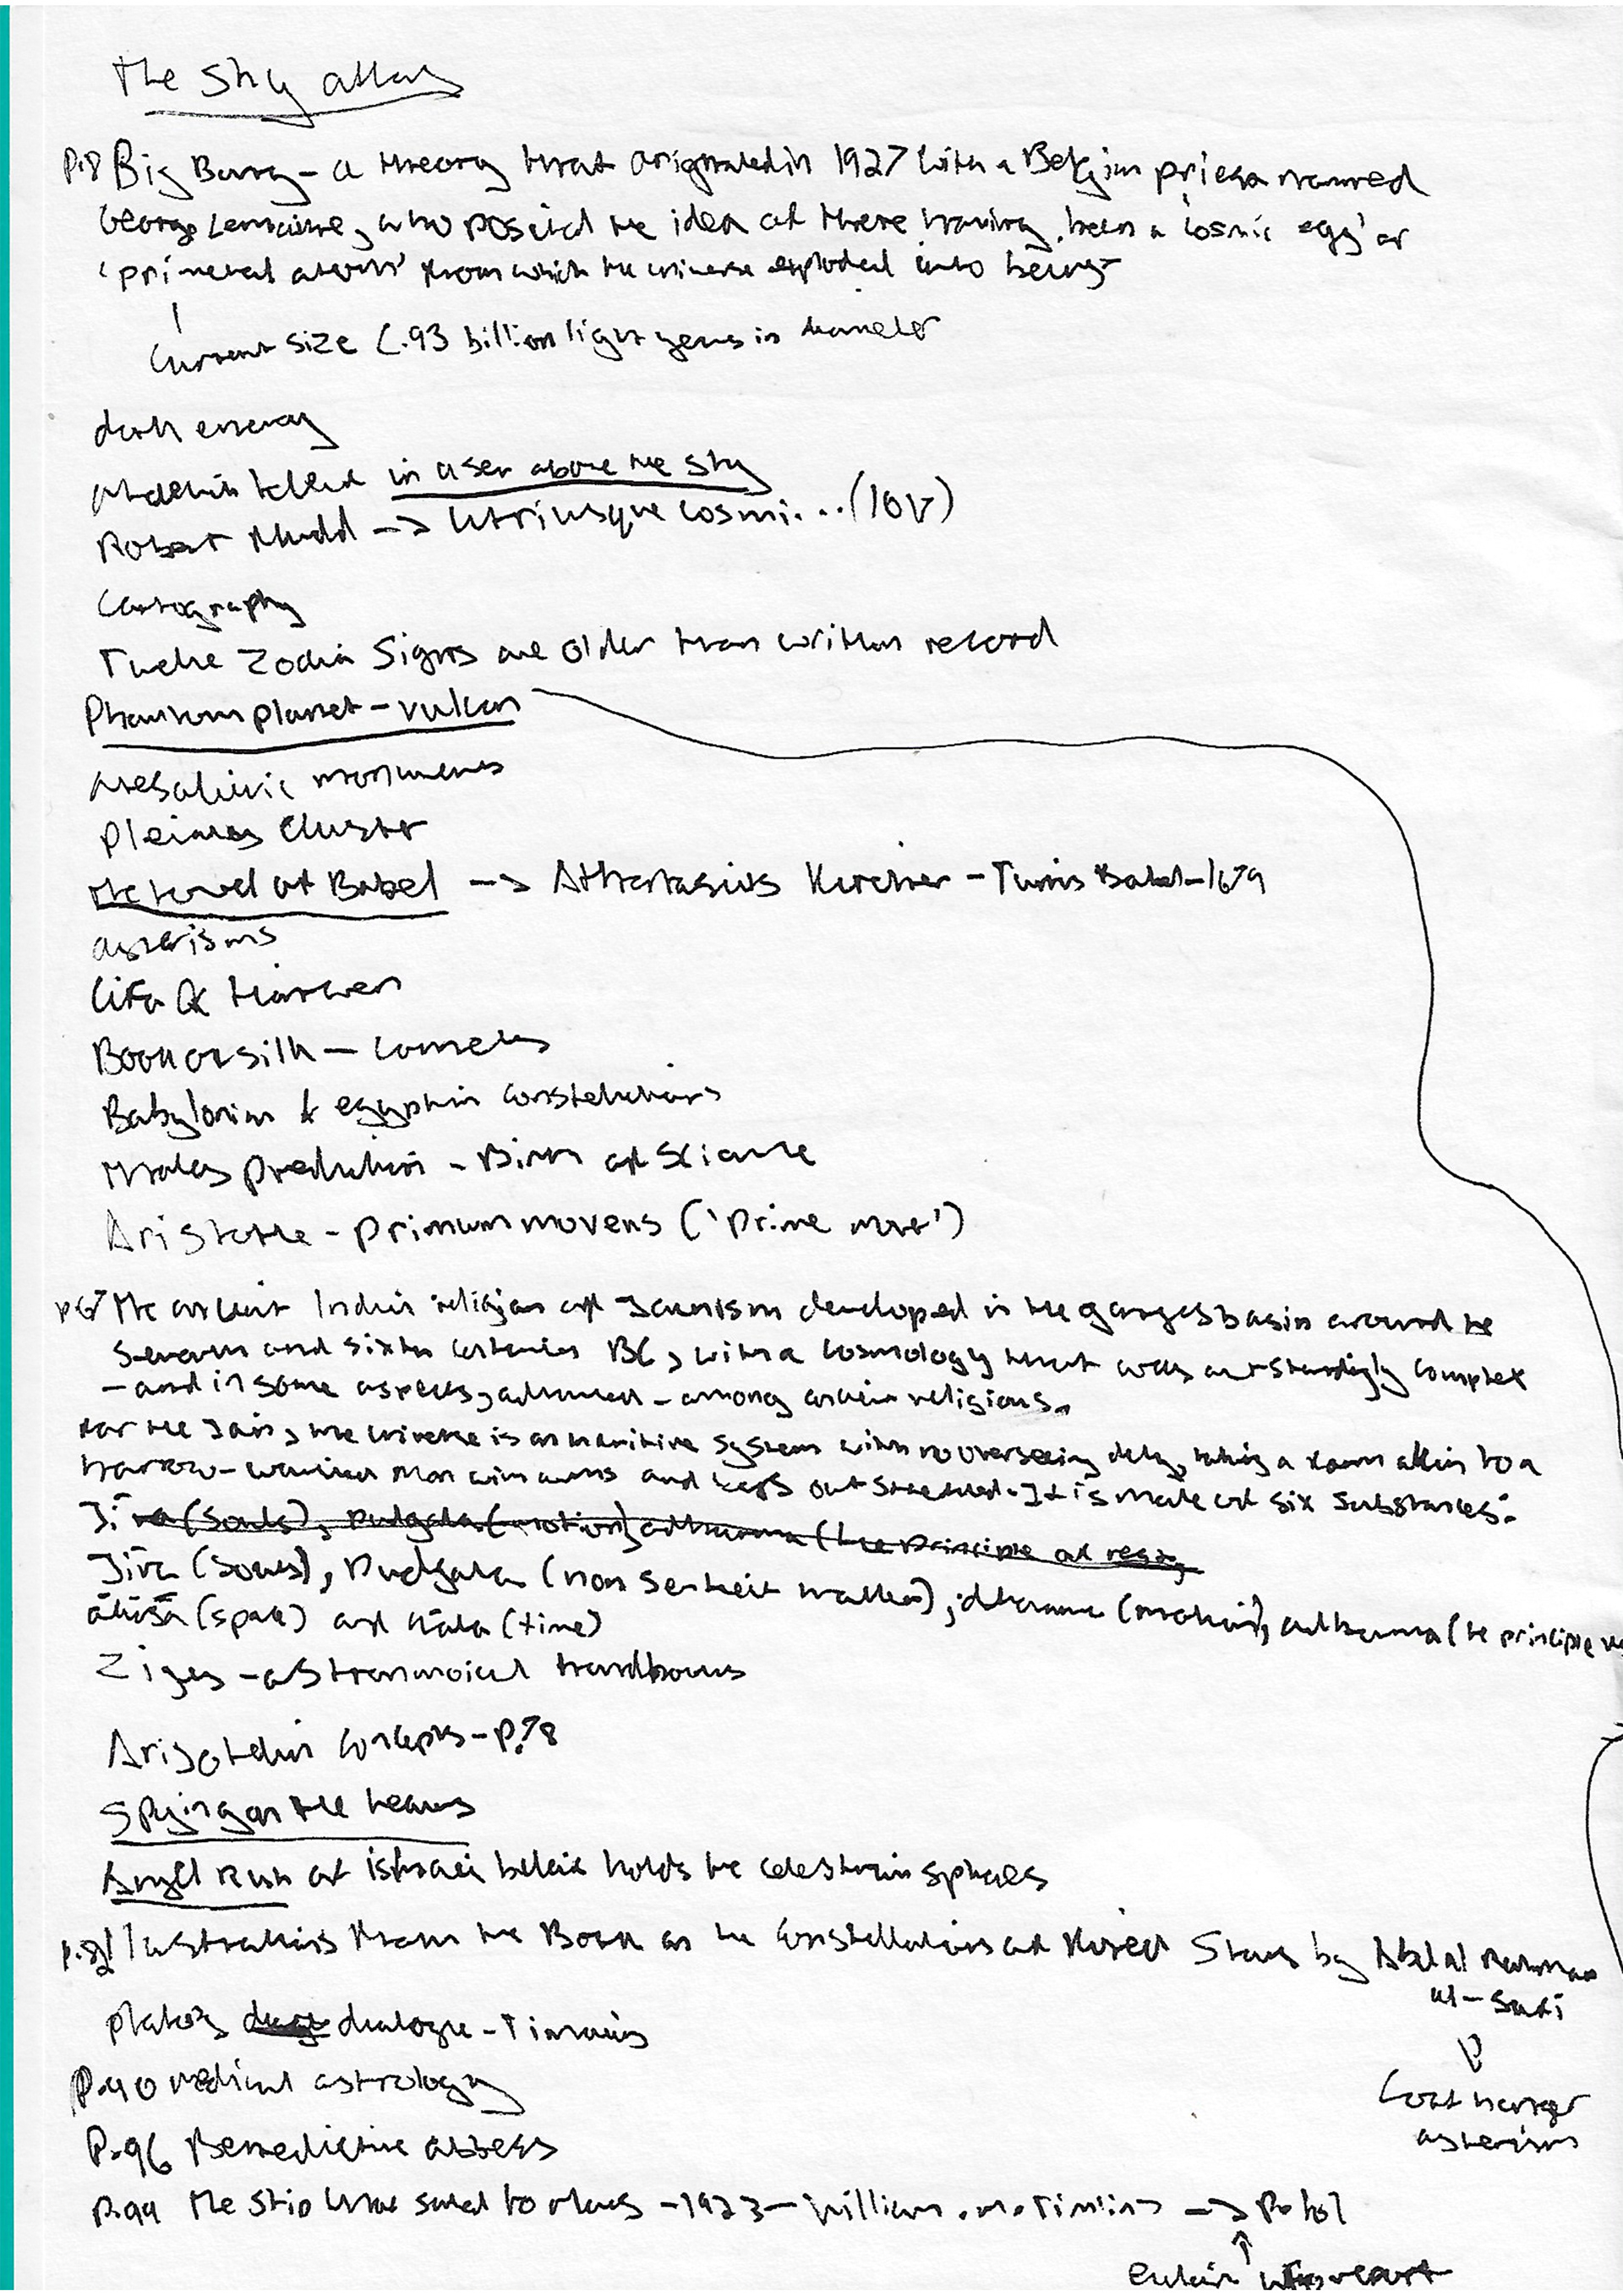 The Sky atlas
P.18 Big Bang - a theory that originated in 1927 with a Belgian priest named
George Lemaitre, who posited the idea of there having been a 'cosmic egg' or
'primeval atom' from which the universe exploded into being
Current size c.93 billion light years in diameter
dark energy
in a sea above the sky
Robert Fludd -> Utriusque Cosmi...(10V)
Cartography
Twelve Zodia Signs are older than written record
Phantom planet - vulcan
Megalithic monuments
Pleiades Cluster
The tower of Babel -> Athanasius Kircher - Turris Babel - 1679
asterisms
Book of silk - comets
Babylonian & egyptian constellations
Thales prediction - Birth of Science
Aristotle - primum movens ('prime mover')
P.67 The ancient Indian religion of Jainism developed in the ganges basin around the
seventh and sixth centuries BC, with a cosmology that was outstandingly complex
- and in some aspects, advanced - among ancient religions.
For the Jain, the universe is an infinitive system with no overseeing deity, taking a form akin to a
narrow-waisted man with arms and legs outstretched. It is made of six substances:
Jiva (Souls), Pudgala (motion) adharma (the principle of rest),
Jiva (Souls), Pudgala (non sentient matter), dharma (motion), adharma (the principle
ākāśa (space) and Kāla (time)
Zijes - astronomical handbooks
Aristotelian Concepts - P.78
Spying on the heavens
Angel Ruh of belief holds the celestrain spheres
P.81 Illustrations from the Book on the Constellations of Fixed Stars by Abd al Rahman
al-Sufi
Coat hanger
asterism
Plato's dialogue - Timaeus
P.90 medical astrology
P.96 Benedictine abbess
P.99 The Ship that sailed to Mars - 1923 - William . m. Timlin ->